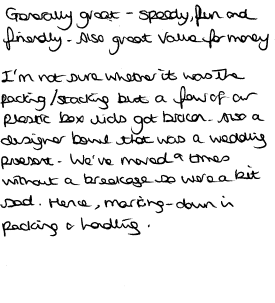 Generally great - speedy, fun and
friendly. Also great value for money
I'm not sure whether it was the
packing/stacking but a few of our
plastic box lids got broken. Also a
designer bowl that was a wedding
present. We've moved 9 times
without a breakage so were a bit
sad. Hence, marking-down in
packing & handling.